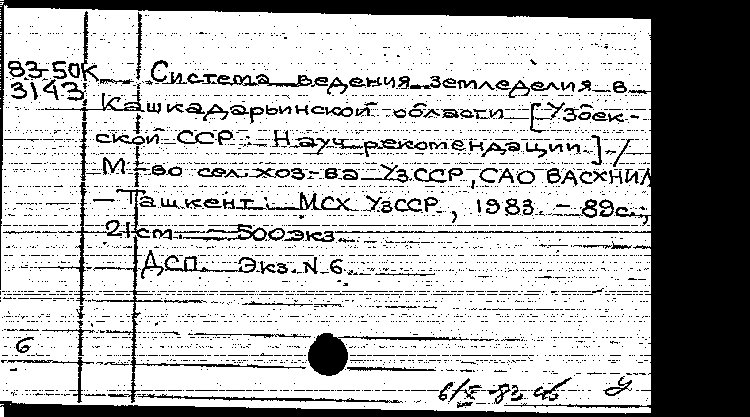 83-50К Система ведения земледелия в
3143 Кашкадарьинской области [Узбек-
ской ССР : Науч. рекомендации.] /
М-во сел. хоз-ва УзССР, САО ВАСХНИЛ
– Ташкент : МСХ УзССР, 1983. – 89с.;
21см. – 500экз.
ДСП. Экз. N 6.
6